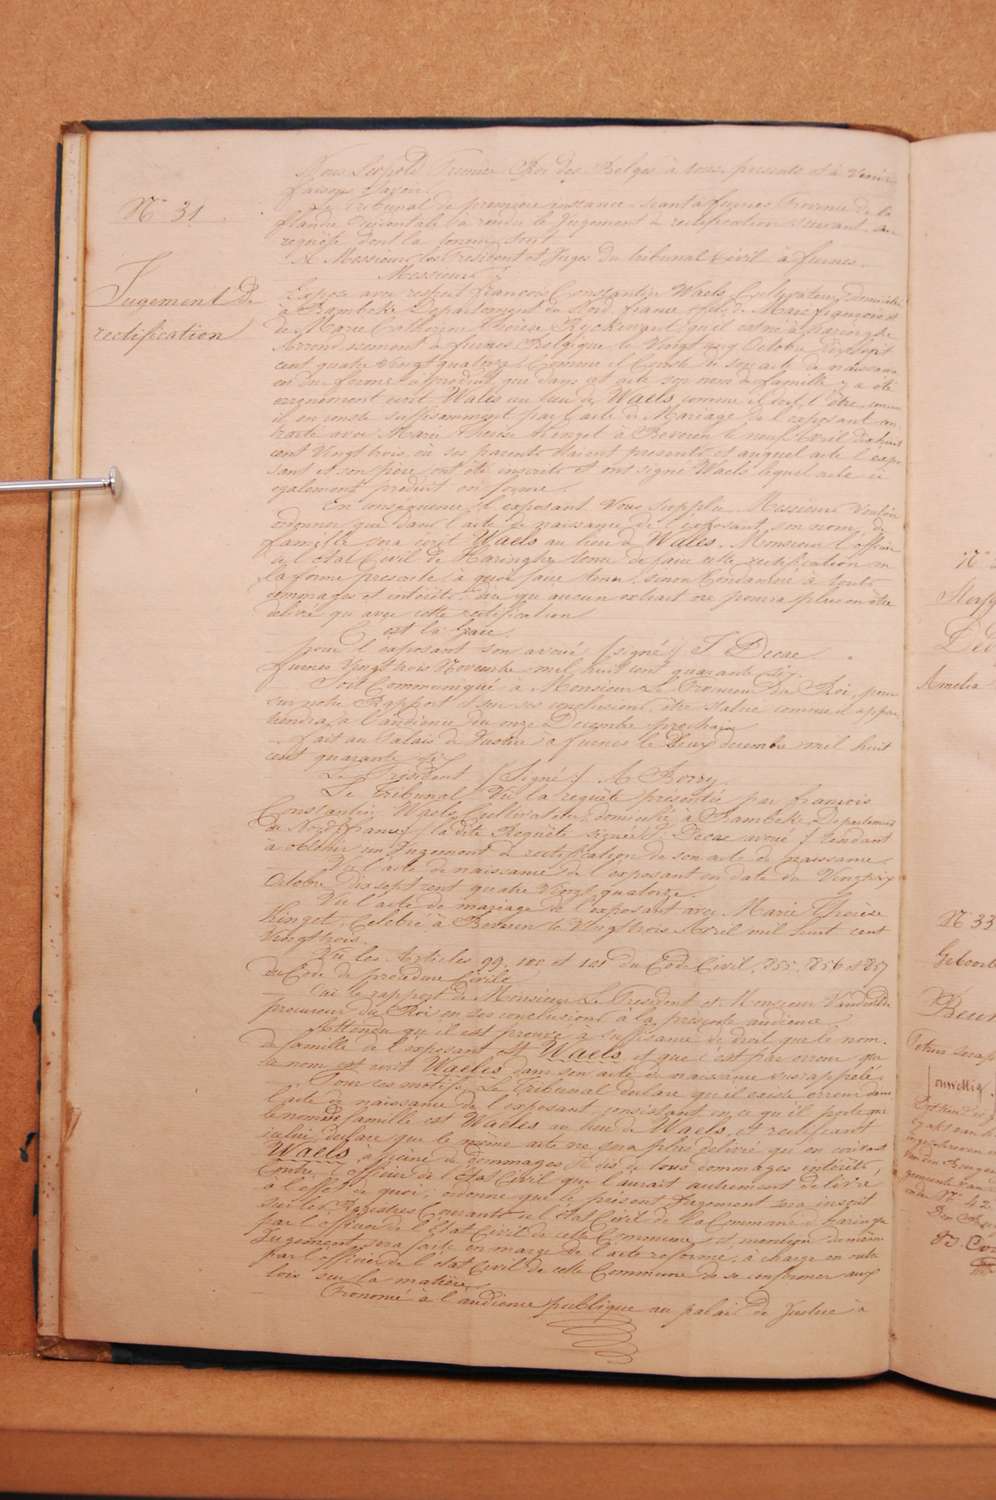 N° 31
Jugement de
rectification
Nous Leopold Premier Roi des Belges à tous présents et à venir
faisons savoir
Le Tribunal de première instance séant à furnes Province de la
flandre occidentale a rendu le Jugement de rectification suivant, au
requête dont la teneur suit
A Messieurs les President et Juges du tribunal Civil à furnes
Messieurs
Expose avec respect françois Constantin Waels Cultivateur domicilié
à Rambeke Département du Nord, france, fils de Marc françois et
de Marie Catherine Thérèse Ryckewaert qu'il est né à haringhe
Arrondissement de furnes Belgique le Vingt six Octobre dix sept
cent quatre vingt quatorze Comme il conste de son acte de naissance
en due forme ci produit, que dans cet acte son nom de famille y a été
erronément écrit Wales au lieu de Waels comme il doit l'être, comme
il en conste suffisamment par l'acte de Mariage de l'exposant con
tracté avec Marie Thérèse Kinget à Beveren le Avril dix huit
cent Vingt trois, où ses parents étaient présents et auquel acte l'expo
sant et son père ont été inscrits et ont signé Waels lequel acte ci
également produit en forme.
En conséquence l'exposant Vous supplie Messieurs Vouloir
ordonner que dans l'acte de naissance de l'exposant, son nom de
famille sera écrit Waels au lieu de Wales. Monsieur l'officier
de l'état Civil de Haringhe tenu de faire cette rectification en
la forme prescrite à quoi faire tenu, sinon Condamné à tous
dommages et intérêts, dit qu'aucun extrait ne pourra plus en être
délivré qu'avec cette rectification
C'est la Grace.
pour l'exposant son avoué (signé) J. Decae
furnes Vingt trois Novembre mil huit cent quarante six.
Soit Communiqué à Monsieur Le Procureur du Roi, pour
sur notre Rapport et sur ses conclusions être statué comme il appar
tiendra à l'audience du onze Decembre prochain
fait au Palais de Justice à furnes le Deux decembre mil huit
cent quarante six
Le President (Signé) A Borry
Le Tribunal, Vu la requête présentée par françois
Constantin Waels, Cultivateur, domicilié à Rambeke, Departement
du Nord (france) la dite Requête signée J. Decae avoué) tendant
à obtenir un Jugement de rectification de son acte de naissance.
Vu l'acte de naissance de l'exposant en date du Vingt six
Octobre dix sept cent quatre Vingt quatorze.
Vu l'acte de mariage de l'exposant avec Marie Thérèse
Kinget, Célébré à Beveren le Vingt trois Avril mil huit cent
Vingt trois.
Vu les Articles 99, 100 et 101 du Code Civil, 855, 856 et 857
du Code de procédure Civile
Oui le rapport de Monsieur Le President et Monsieur
procureur du Roi en ses conclusions à la présente audience.
Attendu qu'il est prouvé à suffisance de droit que le nom
de famille de l'exposant est Waels, et que c'est par erreur que
ce nom est écrit Waeles dans son acte de naissance susrappelé
Pour ces motifs, Le Tribunal déclare qu'il existe erreur dans
l'acte de naissance de l'exposant, consistant en ce qu'il porte que
le nom de famille est Waeles au lieu de Waels, et rectifiant
icelui, declare que le même acte ne sera plus délivré qu'en écrivant
Waels, à peine de dommages et de tous dommages intérêts,
Contre l'officier de l'Etat Civil qui l'aurait autrement délivré
à l'effet de quoi, ordonne que le présent Jugement sera inscrit
sur les Registres Courants de l'Etat Civil de la Commune de haringe
par l'officier de l'Etat Civil de cette Commune, et mention du même
Jugement sera faite en marge de l'acte reformé, à charge en outre
par l'officier de l'état Civil de cette Commune de se conformer aux
lois sur la matière,
Prononcé à l'audience publique au palais de Justice à
N° 33
Amelia
N° 42